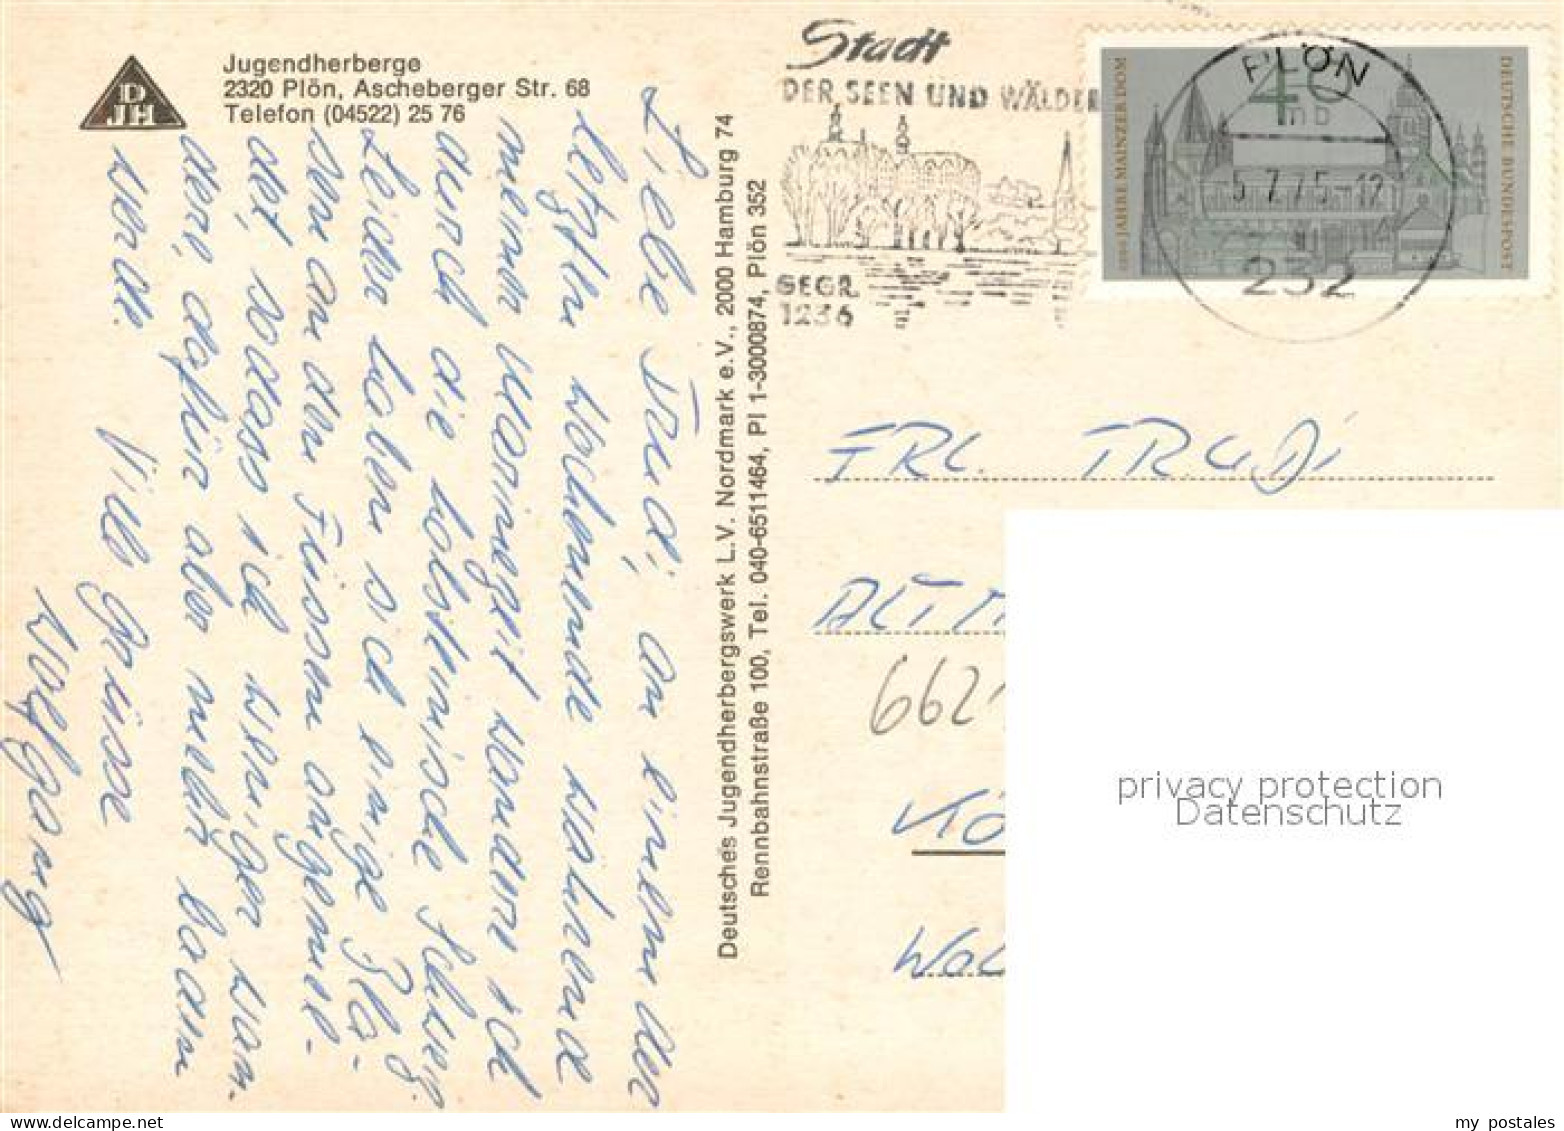 Jugendherberge
2320 Plön, Ascheberger Str. 68
Telefon (04522) 25 76
DJH
Liebe Trudi, an einem der
letzten Wochenende während
meiner Marinezeit wandere ich
durch die holsteinische Schweiz.
Leider haben sich einige Bla-
sen an den Füssen angemel-
det, sodass ich weniger wan-
dere, dafür aber mehr baden
werde.
Viele Grüsse
Wolfgang
Deutsches Jugendherbergswerk L.V. Nordmark e.V., 2000 Hamburg 74
Rennbahnstraße 100, Tel. 040-6511464, PI 1-3000874, Plön 352
Stadt
DER SEEN UND WÄLDER
GEGR.
1236
PLÖN
mb
5.7.75-12
232
40
1000 JAHRE MAINZER DOM
DEUTSCHE BUNDESPOST
FRL. TRUDI
ALTM
662
VÖ
privacy protection
Datenschutz
my postales